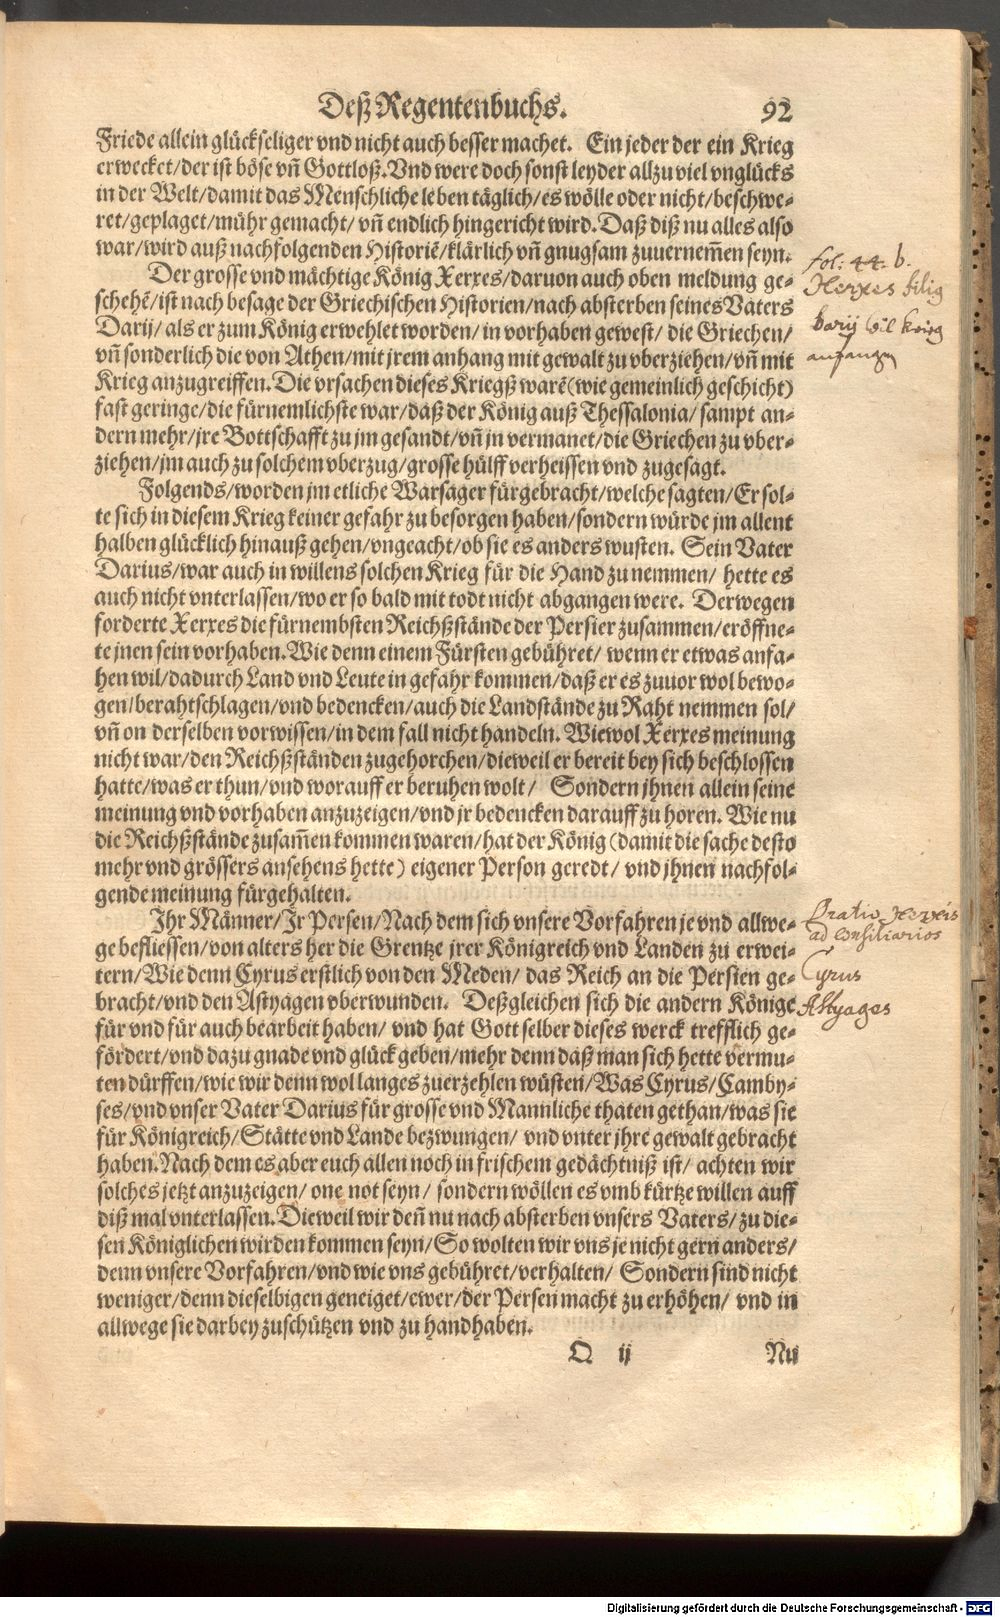 Deß Regentenbuchs. 92
Friede allein glückseliger vnd nicht auch besser machet. Ein jeder der ein Krieg
erwecket/der ist böse vñ Gottloß. Vnd were doch sonst leyder allzu viel vnglücks
in der Welt/damit das Menschliche leben täglich/es wölle oder nicht/beschwe-
ret/geplaget/mühr gemacht/vñ endlich hingericht wird. Daß diß nu alles also
war/wird auß nachfolgenden Historiẽ/klärlich vñ gnugsam zuuernem̃en seyn.
Der grosse vnd mächtige König Xerxes/daruon auch oben meldung ge-
schehẽ/ist nach besage der Griechischen Historien/nach absterben seines Vaters
Darij/als er zum König erwehlet worden/in vorhaben gewest/die Griechen/
vñ sonderlich die von Athen/mit jrem anhang mit gewalt zu vberziehen/vñ mit
Krieg anzugreiffen. Die vrsachen dieses Kriegß warẽ (wie gemeinlich geschicht)
fast geringe/die fürnemlichste war/daß der König auß Thessalonia/sampt an-
dern mehr/jre Bottschafft zu jm gesandt/vñ jn vermanet/die Griechen zu vber-
ziehen/jm auch zu solchem vberzug/grosse hülff verheissen vnd zugesagt.
Folgends/worden jm etliche Warsager fürgebracht/welche sagten/Er sol-
te sich in diesem Krieg keiner gefahr zu besorgen haben/sondern würde jm allent
halben glücklich hinauß gehen/vngeacht/ob sie es anders wusten. Sein Vater
Darius/war auch in willens solchen Krieg für die Hand zu nemmen/hette es
auch nicht vnterlassen/wo er so bald mit todt nicht abgangen were. Derwegen
forderte Xerxes die fürnembsten Reichßstände der Persier zusammen/eröffne-
te jnen sein vorhaben. Wie denn einem Fürsten gebühret/wenn er etwas anfa-
hen wil/dadurch Land vnd Leute in gefahr kommen/daß er es zuuor wol bewo-
gen/berahtschlagen/vnd bedencken/auch die Landstände zu Raht nemmen sol/
vñ on derselben vorwissen/in dem fall nicht handeln. Wiewol Xerxes meinung
nicht war/den Reichßständen zugehorchen/dieweil er bereit bey sich beschlossen
hatte/was er thun/vnd worauff er beruhen wolt/ Sondern jhnen allein seine
meinung vnd vorhaben anzuzeigen/vnd jr bedencken darauff zu hören. Wie nu
die Reichßstände zusam̃en kommen waren/hat der König (damit die sache desto
mehr vnd grössers ansehens hette) eigener Person geredt/vnd jhnen nachfol-
gende meinung fürgehalten.
Ihr Männer/Ir Persen/Nach dem sich vnsere Vorfahren je vnd allwe-
ge befliessen/von alters her die Grentze jrer Königreich vnd Landen zu erwei-
tern/Wie denn Cyrus erstlich von den Meden/das Reich an die Persien ge-
bracht/vnd den Astyagen vberwunden. Deßgleichen sich die andern Könige
für vnd für auch bearbeit haben/vnd hat Gott selber dieses werck trefflich ge-
fördert/vnd dazu gnade vnd glück geben/mehr denn daß man sich hette vermu-
ten dürffen/wie wir denn wol langes zuerzehlen wüsten/Was Cyrus/Camby-
ses/vnd vnser Vater Darius für grosse vnd Mannliche thaten gethan/was sie
für Königreich/Stätte vnd Lande bezwungen/vnd vnter jhre gewalt gebracht
haben. Nach dem es aber euch allen noch in frischem gedächtniß ist/achten wir
solches jetzt anzuzeigen/one not seyn/sondern wöllen es vmb kürtze willen auff
diß mal vnterlassen. Dieweil wir deñ nu nach absterben vnsers Vaters/zu die-
sen Königlichen wirden kommen seyn/So wolten wir vns je nicht gern anders/
denn vnsere Vorfahren/vnd wie vns gebühret/verhalten/ Sondern sind nicht
weniger/denn dieselbigen geneiget/ewer/der Persen macht zu erhöhen/vnd in
allwege sie darbey zuschützen vnd zu handhaben.
Q ij Nu
fol: 44. b.
Xerxes filig
Darij wil krieg
anfangen
Oratio Xerxis
ad consiliarios
Cyrus
Astyages
Digitalisierung gefördert durch die Deutsche Forschungsgemeinschaft - DFG